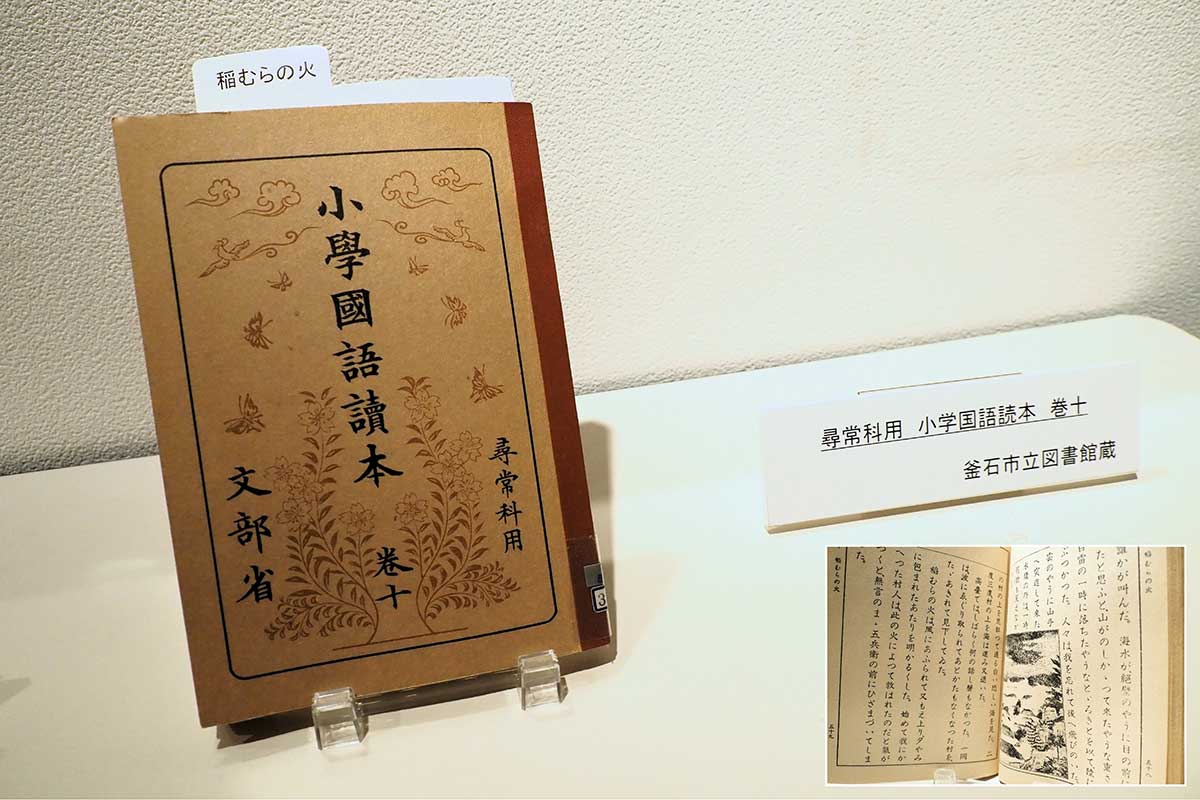 稲むらの火
小學國語讀本
尋常科用
卷十
文部省
3
尋常科用 小学国語読本 巻十
釜石市立図書館蔵
稲むらの火
五十八
誰かが叫んだ。海水が絶壁のやうに目の前
たと思ふと、山がのしかゝつて來たやうな重さ
百雷の一時に落ちたやうなとゞろきとを以て陸に
ぶつかつた。人々は我を忘れて後へ飛びのいた。
雲のやうに山手
へ突進して來た
水煙の外は、
の村の上を荒狂つて通る白い恐しい海を見た。二
度三度村の上を海は進み又退いた。
高臺では、しばらく何の話し聲もなかつた。一同
は、波にゑぐり取られてあとかたもなくなつた村を、
たゞあきれて見下してゐた。
稲むらの火は、風にあふられて又もえ上り、夕やみ
に包まれたあたりを明かるくした。始めて我にか
へつた村人は、此の火によつて救はれたのだと氣が
つくと、無言のまゝ五兵衛の前にひざまづいてしま
た。
稲むらの火
五十九